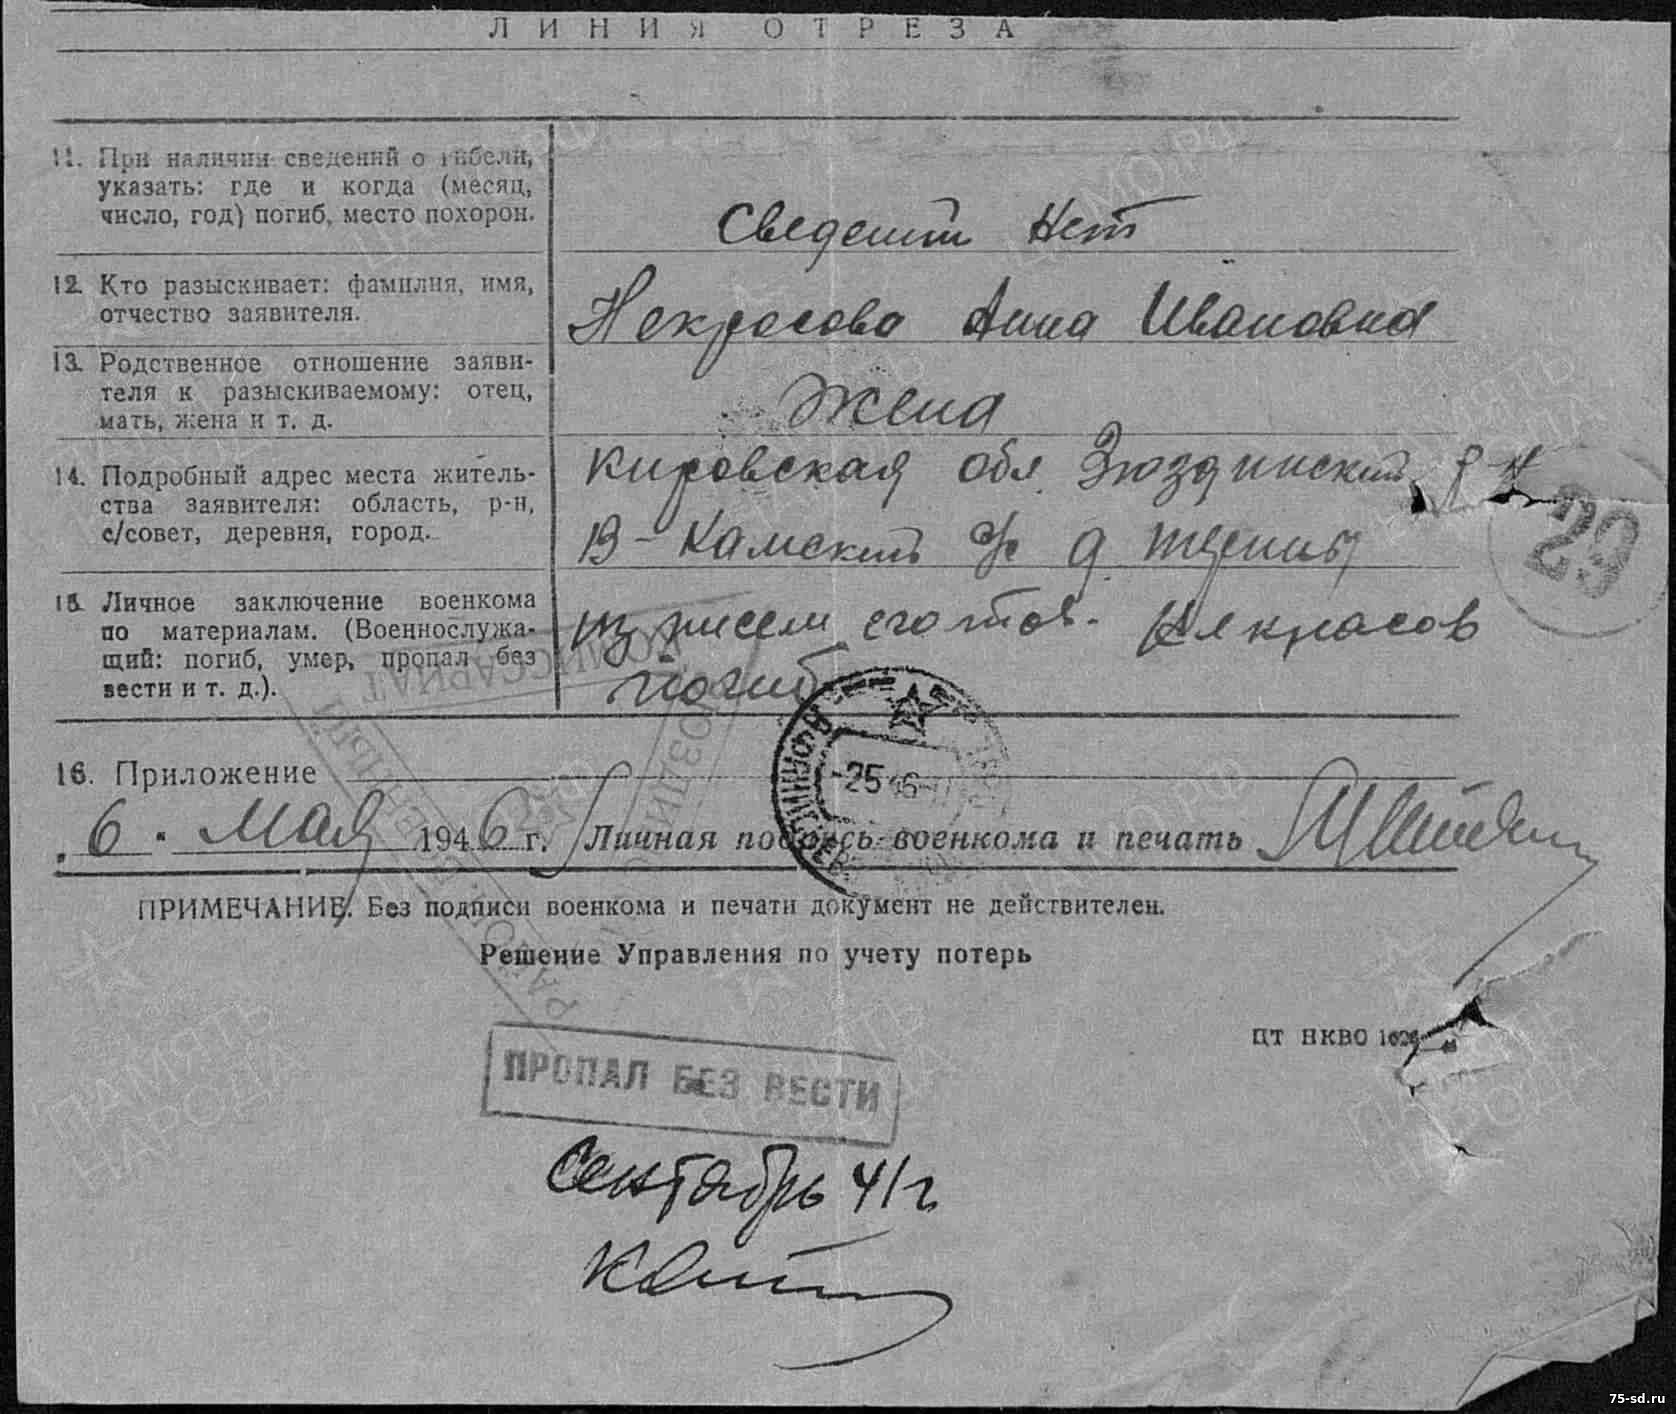 ЛИНИЯ ОТРЕЗА
11. При наличии сведений о гибели,
указать: где и когда (месяц,
число, год) погиб, место похорон.
Сведений Нет
12. Кто разыскивает: фамилия, имя,
отчество заявителя.
Некрасова Анна Ивановна
13. Родственное отношение заяви-
теля к разыскиваемому: отец,
мать, жена и т. д.
Жена
14. Подробный адрес места житель-
ства заявителя: область, р-н,
с/совет, деревня, город.
Кировская обл. Зюздинский р-н
В-Камский с/с д.
29
15. Личное заключение военкома
по материалам. (Военнослужа-
щий: погиб, умер, пропал без
вести и т. д.).
из писем его тов. Некрасов
погиб
16. Приложение
6. Мая 1946 г. Личная подпись военкома и печать
ПРИМЕЧАНИЕ. Без подписи военкома и печати документ не действителен.
Решение Управления по учету потерь
ЦТ НКВО
ПРОПАЛ БЕЗ ВЕСТИ
Сентябрь 41 г
ПАМЯТЬ
НАРОДА
75-sd.ru